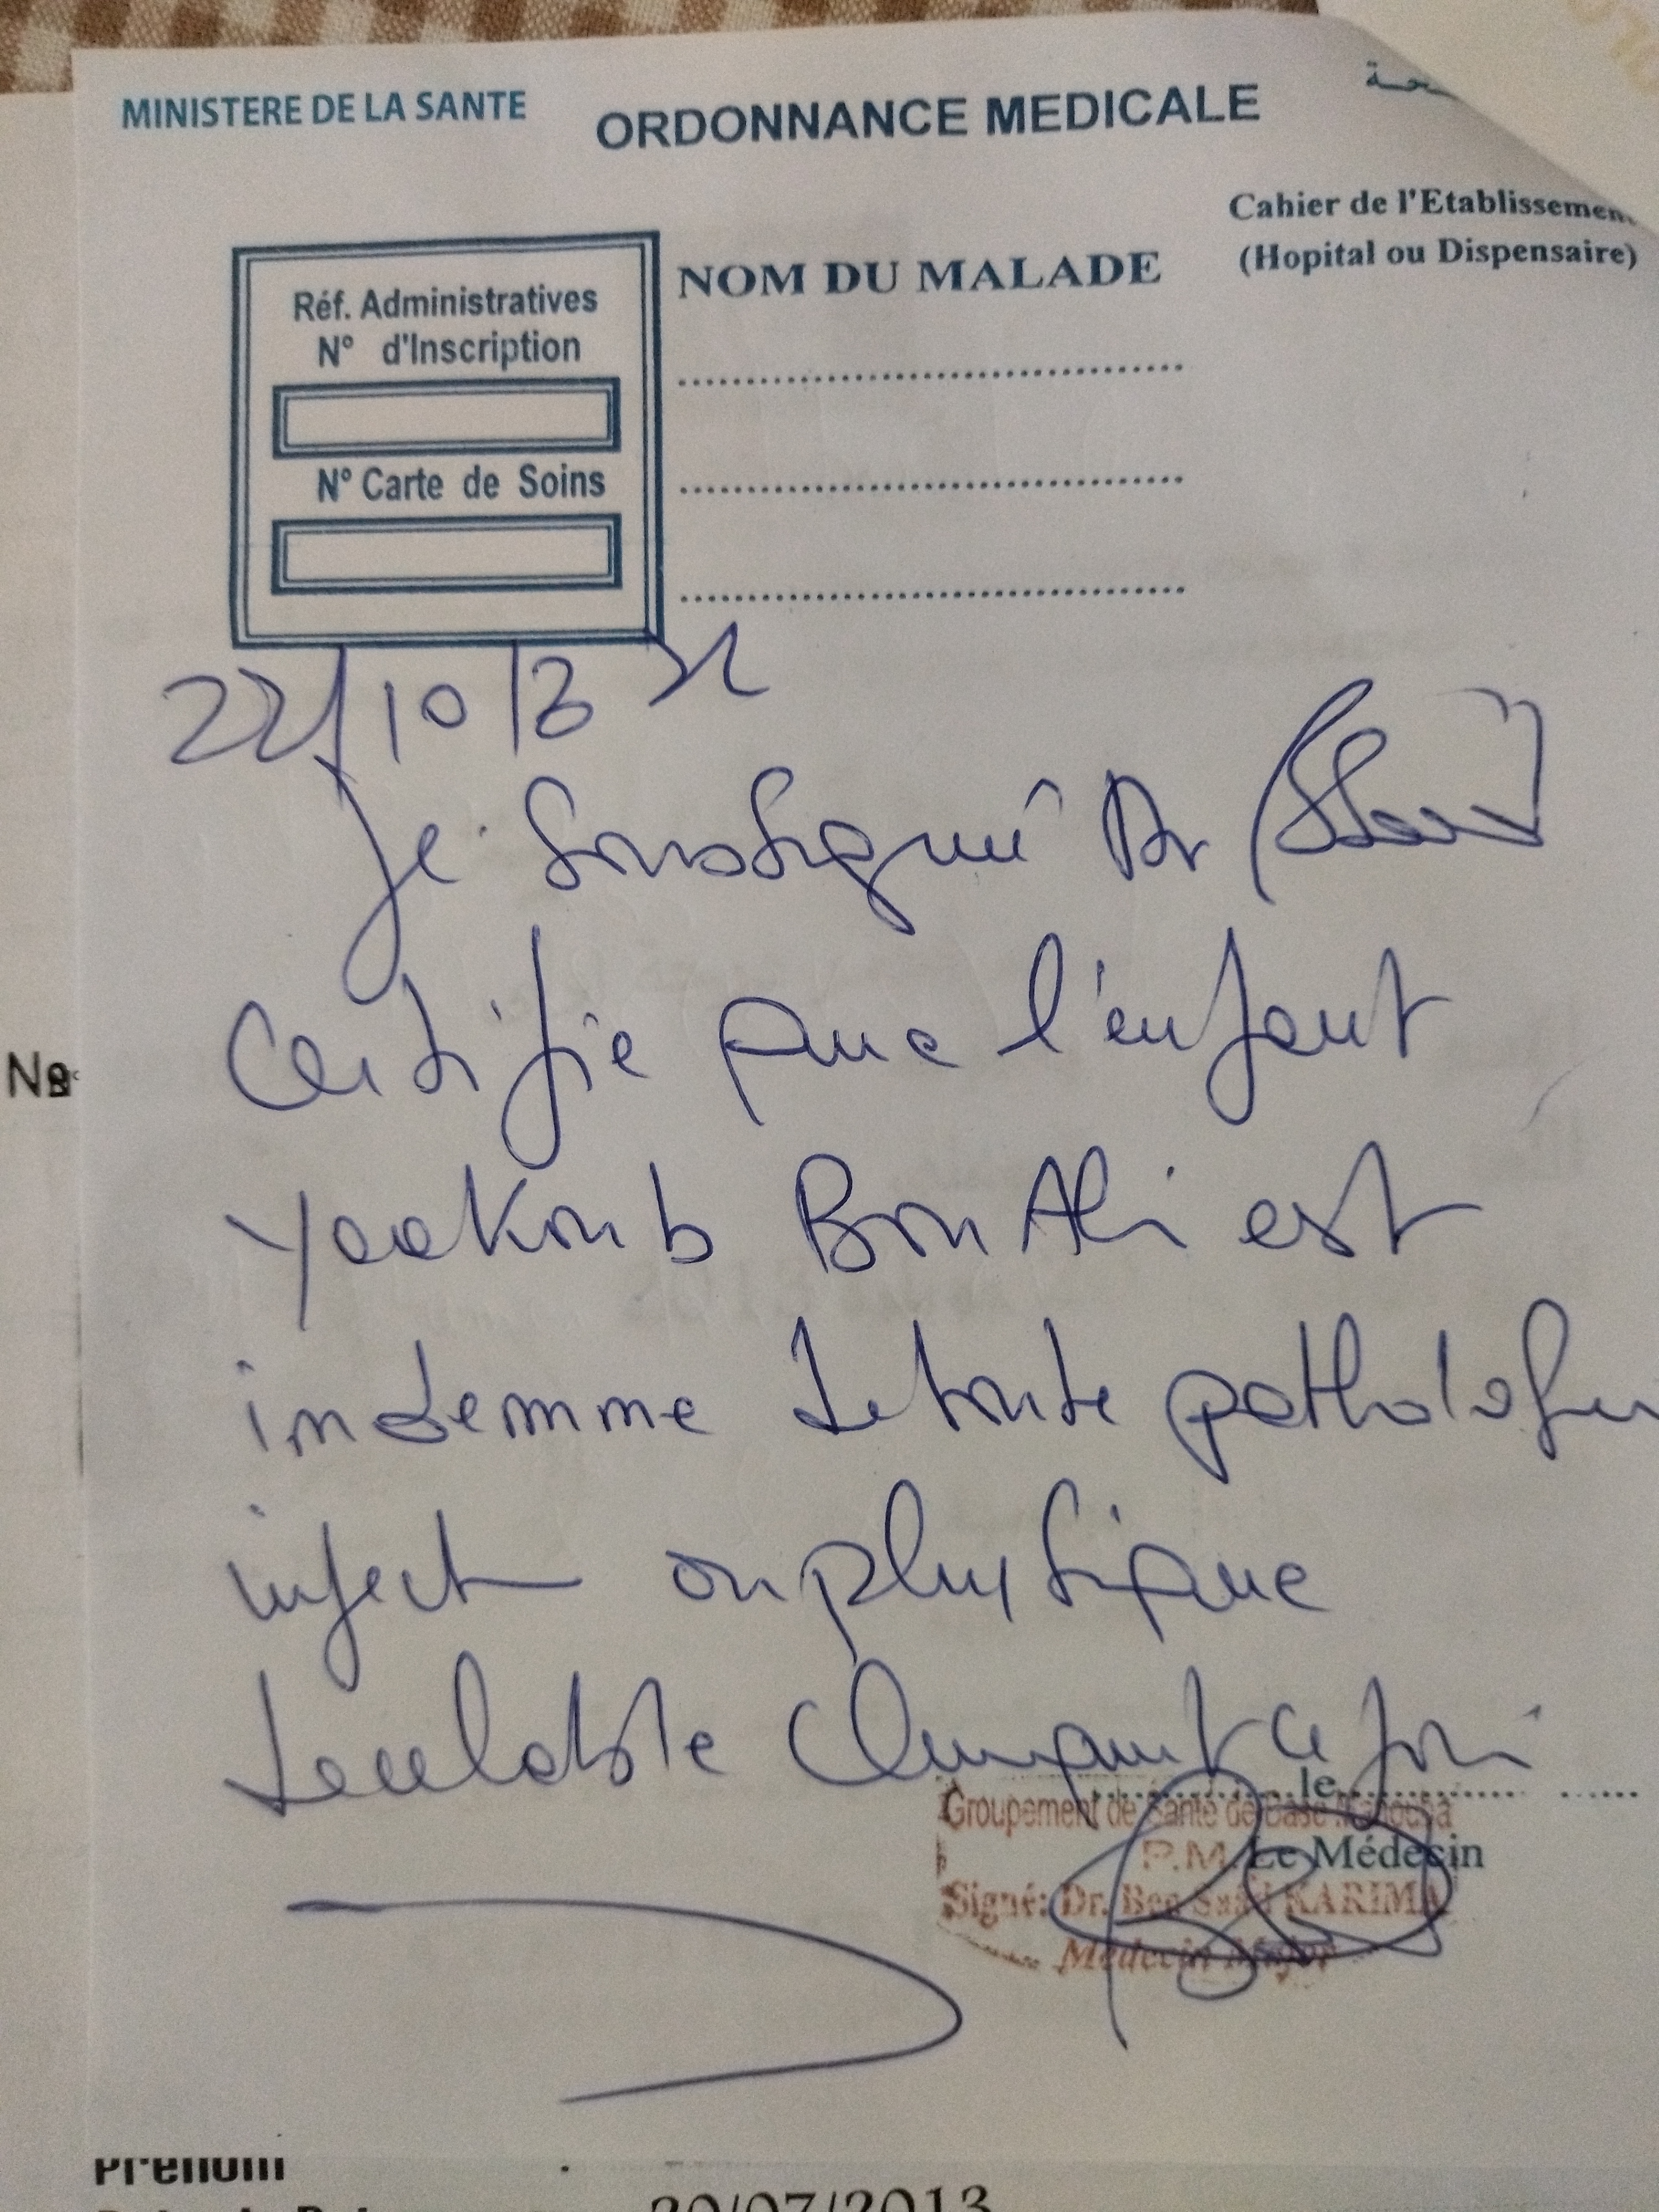 MINISTERE DE LA SANTE
ORDONNANCE MEDICALE
Cahier de l'Etablissemen
(Hopital ou Dispensaire)
NOM DU MALADE
Réf. Administratives
N° d'Inscription
N° Carte de Soins
22/10/
Je soussigné Dr
Certifie que l'enfant
Yaakoub Bou Ali est
indemme de toute pathologie
infect ou physique
decelable cliniquement ce jour
le
Groupement de Santé de Base Manouba
P.M. Le Médecin
Signé: Dr. Ben Saad KARIMA
Médecin Major
Prénom :
20/07/2013